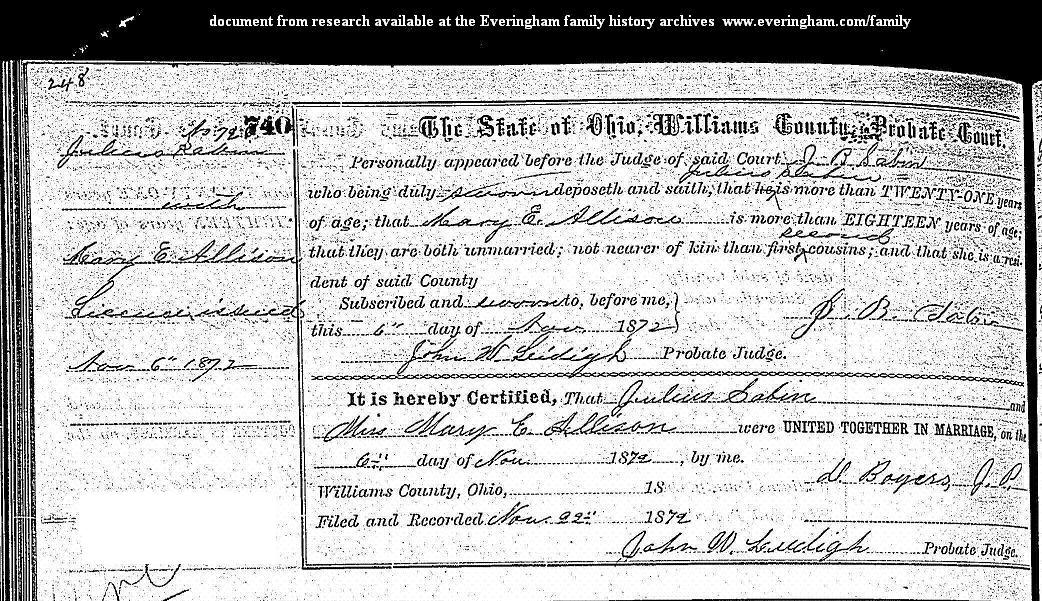 document from research available at the Everingham family history archives www.everingham.com/family
248
740
Julius Sabin
with
Mary E. Allison
License issued
Nov 6" 1872
The State of Ohio, Williams County, Probate Court.
Personally appeared before the Judge of said Court J. B. Sabin
Julius Sabin
who being duly sworn deposeth and saith, that he is more than TWENTY-ONE years
of age; that Mary E. Allison is more than EIGHTEEN years of age;
second
that they are both unmarried; not nearer of kin than first cousins; and that she is a resi-
dent of said County
Subscribed and sworn to, before me,
this 6" day of Nov 1872
J. B. Sabin
John W Leidigh Probate Judge.
It is hereby Certified, That Julius Sabin and
Miss Mary E. Allison were UNITED TOGETHER IN MARRIAGE, on the
6" day of Nov. 1872, by me.
D Boyers J.P.
Williams County, Ohio, 18
Filed and Recorded Nov. 22" 1872
John W. Leidigh Probate Judge.